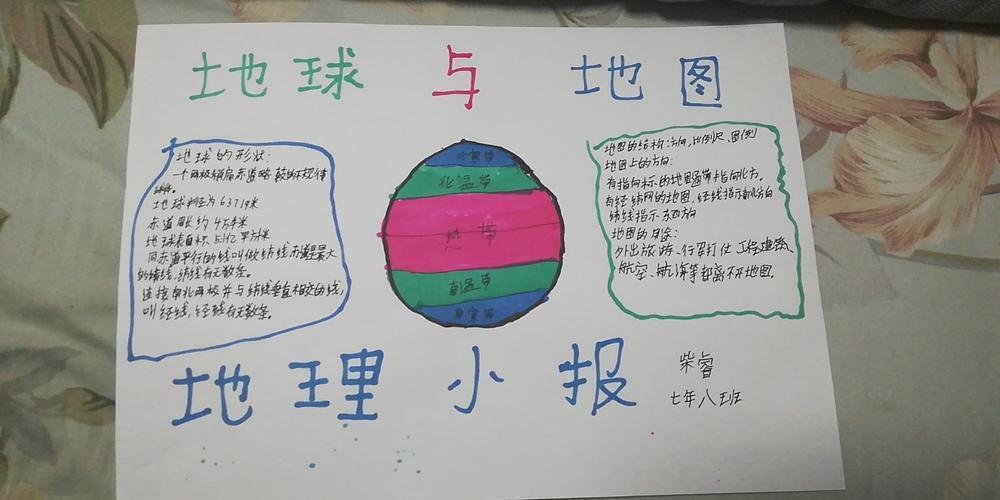 地球 与 地图
地球的形状:
一个两极稍扁赤道略 较的不规律
球体。
地球半径为 6371千米
赤道周长约4万千米
地球表面积 5.1亿平方千米
同赤道平行的线叫做纬线 赤道是最大
的纬线,纬线有无数条。
连接南北两极并与纬线垂直相交的线,
叫经线,经线有无数条。
北寒带
北温带
热 带
南温带
南寒带
地图的结构:方向,比例尺、图例
地图上的方向:
有指向标的地图通常指向北方。
有经纬网的地图,经线指示南北方向
纬线指示东西方向
地图的用途:
外出旅游、行军打仗 工程建筑、
航空、航海等都离不开地图。
地理小报
柴睿
七年八班